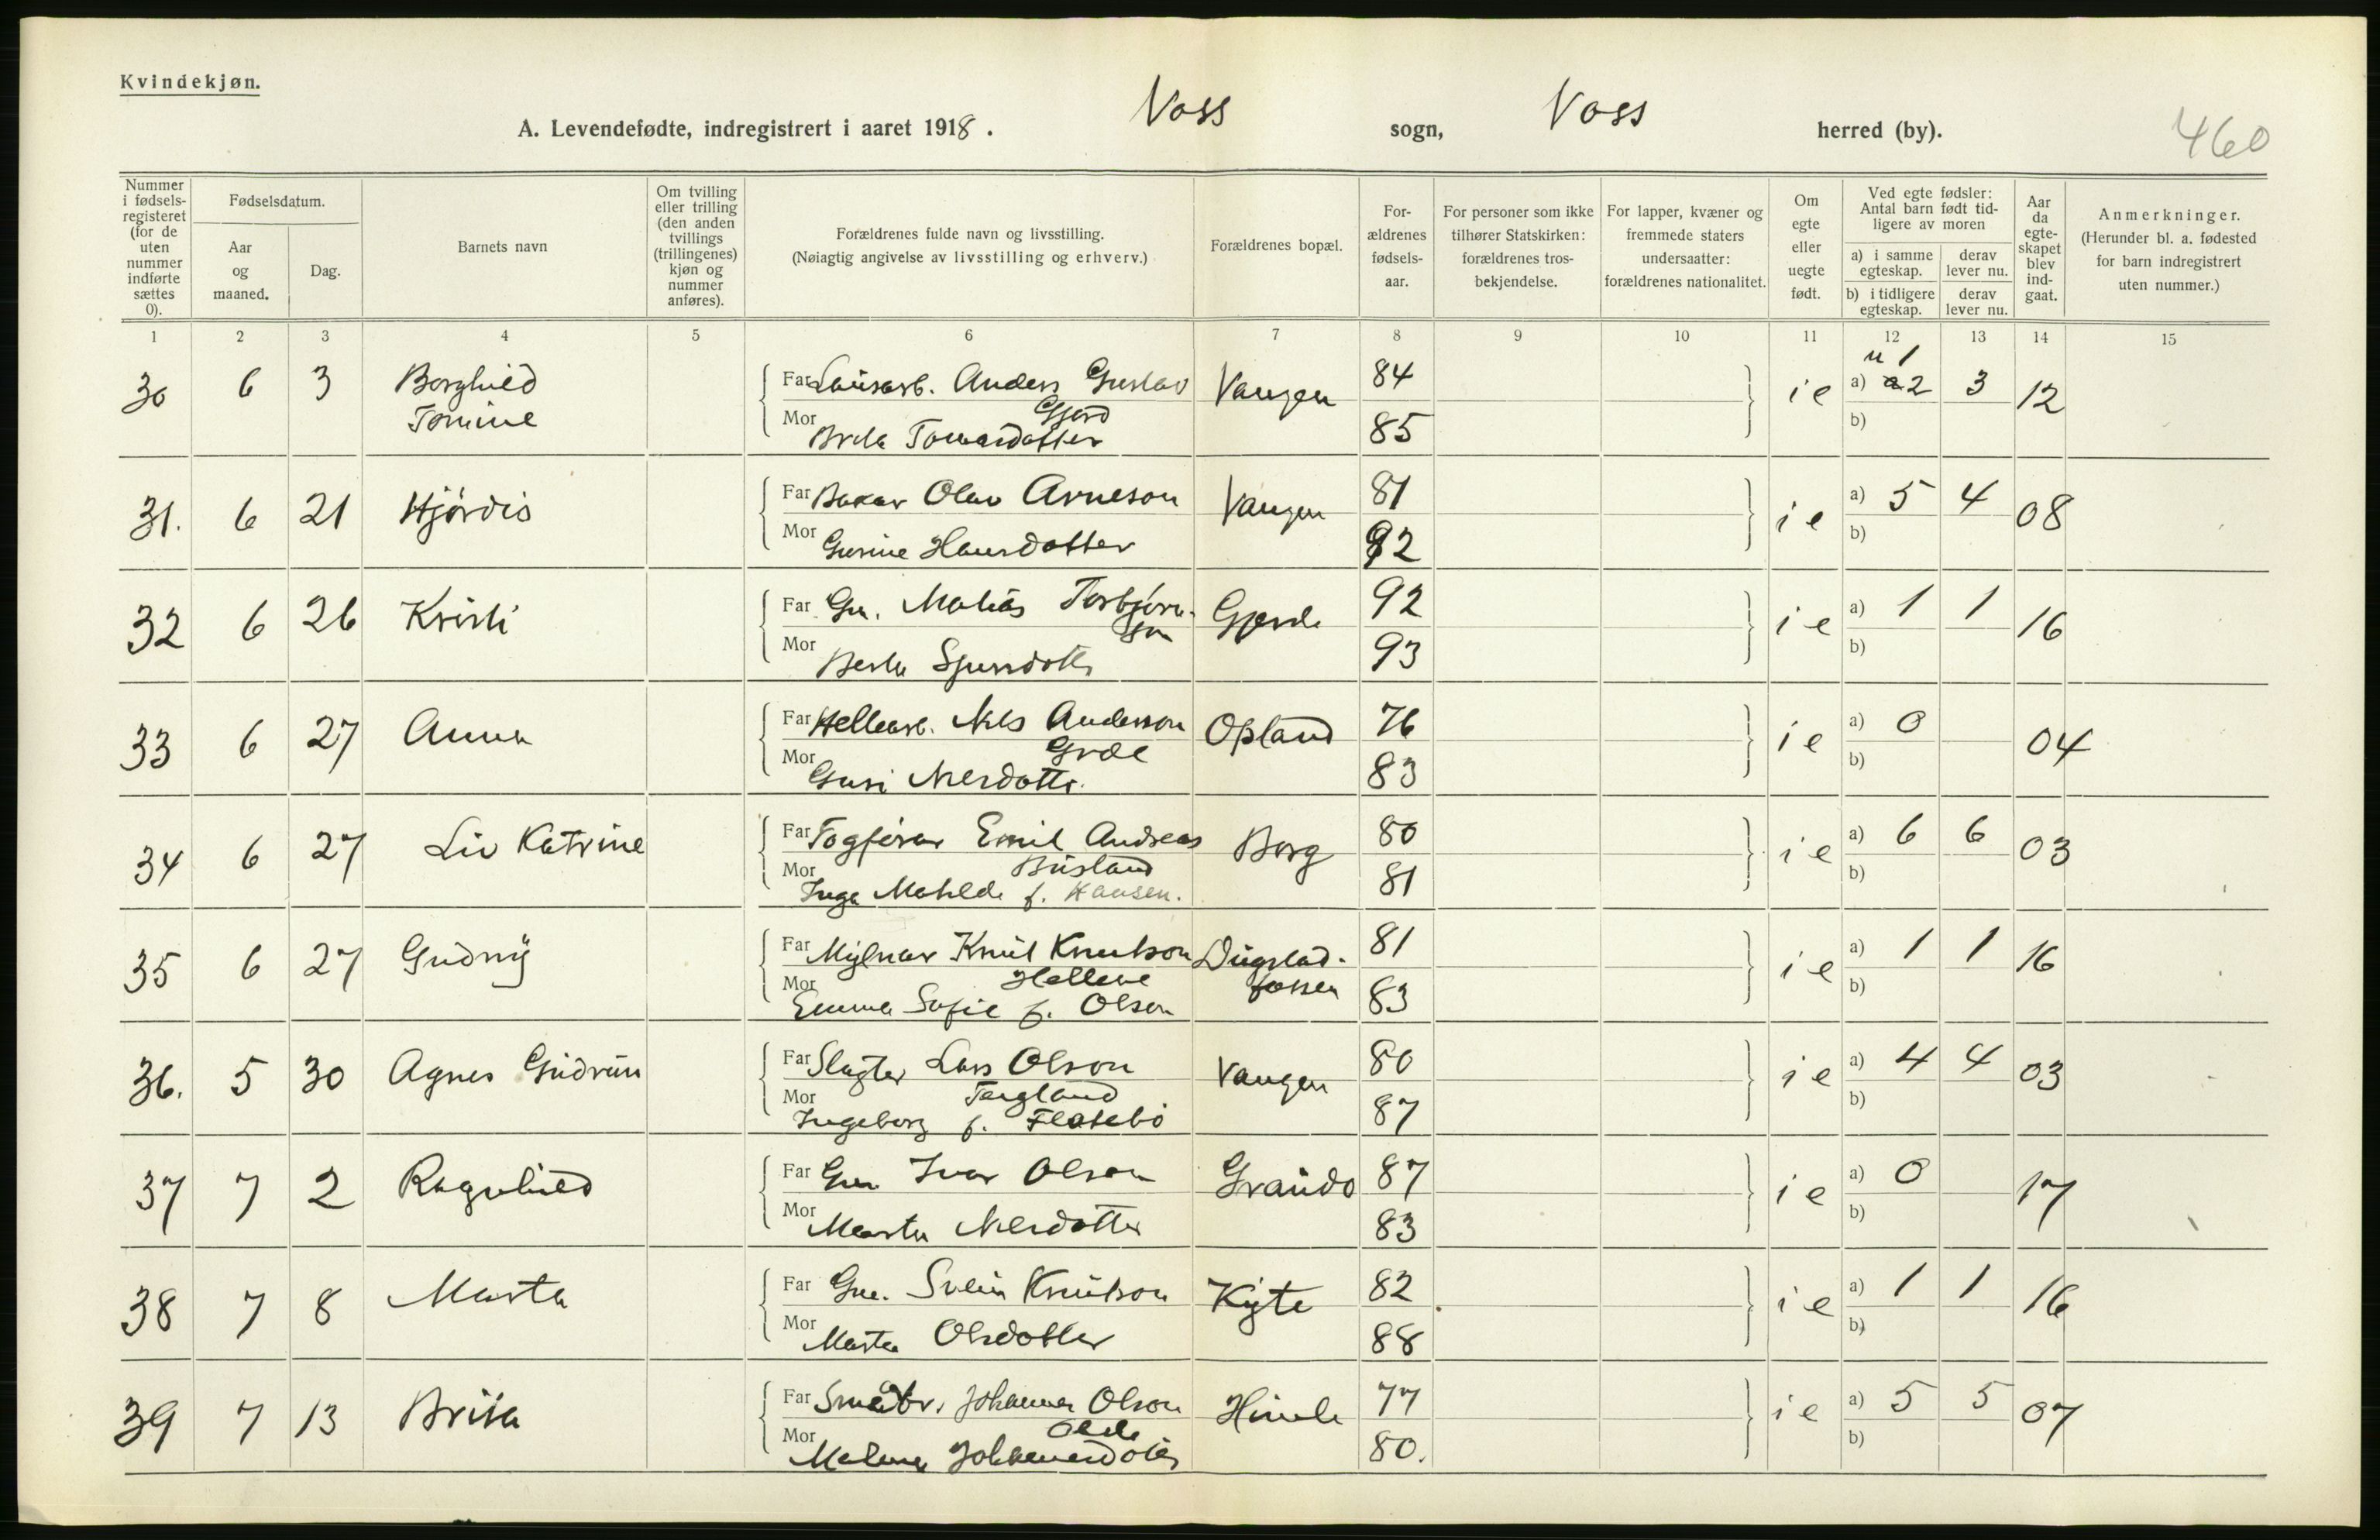 Kvindekjøn.
A. Levendefødte, indregistrert i aaret 1918. Voss sogn, Voss herred (by). 460
Nummer i fødsels-registeret (for de uten nummer indførte sættes 0).
Fødselsdatum.
Aar og maaned.
Dag.
Barnets navn
Om tvilling eller trilling (den anden tvillings (trillingenes) kjøn og nummer anføres).
Forældrenes fulde navn og livsstilling.
(Nøiagtig angivelse av livsstilling og erhverv.)
Forældrenes bopæl.
For-ældrenes fødsels-aar.
For personer som ikke tilhører Statskirken: forældrenes tros-bekjendelse.
For lapper, kvæner og fremmede staters undersaatter: forældrenes nationalitet.
Om egte eller uegte født.
Ved egte fødsler: Antal barn født tid-ligere av moren
a) i samme egteskap. derav lever nu.
b) i tidligere egteskap. derav lever nu.
Aar da egte-skapet blev ind-gaat.
Anmerkninger.
(Herunder bl. a. fødested for barn indregistrert uten nummer.)
1 2 3 4 5 6 7 8 9 10 11 12 13 14 15
30 6 3 Borghild Far Anders Gustav Vangen 84 i e a) 2 3 12
Tomine Gjerd
Mor Brita Tomasdotter 85 b)
31. 6 21 Hjørdis Far Bakar Olav Arneson Vangen 81 i e a) 5 4 08
Mor Gurine Hansdotter 92 b)
32 6 26 Kristi Far Gm. Matias Torbjørn- Gjerde 92 i e a) 1 1 16
son
Mor Berta Sjursdottr 93 b)
33 6 27 Anna Far Hellearb. Nils Anderson Opland 76 i e a) 0 04
Mor Guri Nilsdottr. 83 b)
34 6 27 Liv Katrine Far Togførar Emil Andreas Borg 80 i e a) 6 6 03
Busland
Mor Inga Matilde f. Hansen. 81 b)
35 6 27 Gudny Far Mylnar Knut Knutson Dugstad- 81 i e a) 1 1 16
Hellene fossen
Mor Emma Sofie f. Olsen 83 b)
36. 5 30 Agnes Gudrun Far Slagter Lars Olson Vangen 80 i e a) 4 4 03
Mor Ingeborg f. Flatebø 87 b)
37 7 2 Ragnhild Far Gm Ivar Olson Graudo 87 i e a) 0 17
Mor Marta Nilsdotter 83 b)
38 7 8 Marta Far Gm. Svein Knutson Kyte 82 i e a) 1 1 16
Mor Marta Olsdotter 88 b)
39 7 13 Brita Far Johannes Olson Himle 77 i e a) 5 5 07
Mor Johannesdotter 80. b)